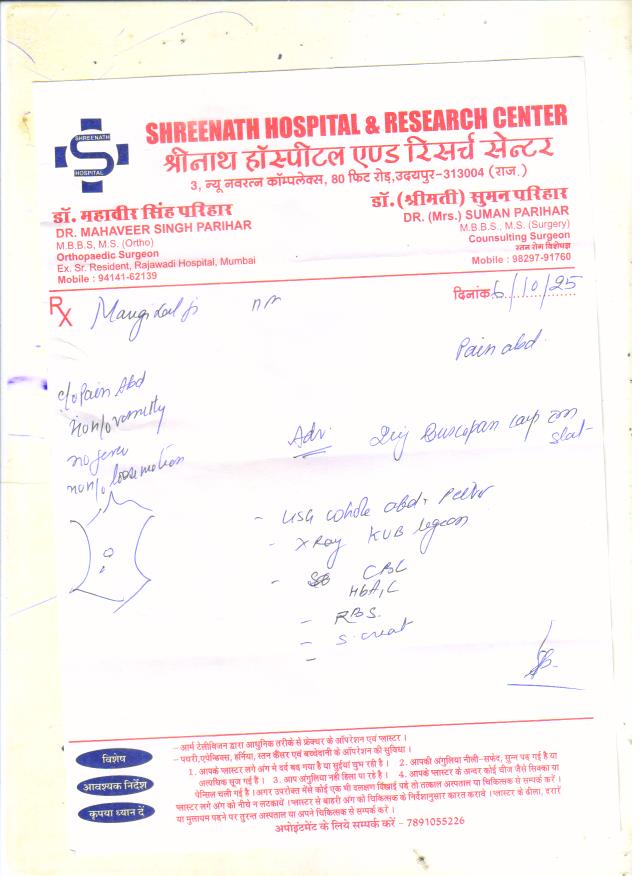 SHREENATH
HOSPITAL
SHREENATH HOSPITAL & RESEARCH CENTER
श्रीनाथ हॉस्पीटल एण्ड रिसर्च सेन्टर
3, न्यू नवरत्न कॉम्पलेक्स, 80 फिट रोड़, उदयपुर-313004 (राज.)
डॉ. महावीर सिंह परिहार
DR. MAHAVEER SINGH PARIHAR
M.B.B.S, M.S. (Ortho)
Orthopaedic Surgeon
Ex. Sr. Resident, Rajawadi Hospital, Mumbai
Mobile : 94141-62139
डॉ. (श्रीमती) सुमन परिहार
DR. (Mrs.) SUMAN PARIHAR
M.B.B.S., M.S. (Surgery)
Counsulting Surgeon
स्तन रोग विशेषज्ञ
Mobile : 98297-91760
दिनांक 6/10/25
Rx
Pain abd.
c/o Pain Abd
no h/o vomitty
no fever
no h/o loosemotion
Adv. Inj Buscopan
stat
- USG whole abd+
- X Ray KUB
- CBC
HbA1C
- RBS.
- S. creat
-
विशेष
आवश्यक निर्देश
कृपया ध्यान दें
– आर्म टेलीविजन द्वारा आधुनिक तरीके से फ्रेक्चर के ऑपरेशन एवं प्लास्टर ।
– पथरी, एपेन्डिक्स, हर्निया, स्तन कैंसर एवं बच्चेदानी के ऑपरेशन की सुविधा ।
1. आपके प्लास्टर लगे अंग मे दर्द बढ़ गया है या सुईयां चुभ रही है । 2. आपकी अंगुलिया नीली-सफेद, सुन्न पड़ गई है या
अत्यधिक सूज गई है । 3. आप अंगुलिया नही हिला पा रहे है । 4. आपके प्लास्टर के अन्दर कोई चीज जैसे सिक्का या
पेन्सिल चली गई है । अगर उपरोक्त मेंसे कोई एक भी लक्षण दिखाई पड़े तो तत्काल अस्पताल या चिकित्सक से सम्पर्क करें ।
प्लास्टर लगे अंग को नीचे न लटकायें । प्लास्टर से बाहरी अंग को चिकित्सक के निर्देशानुसार कारत करावे । प्लास्टर के ढीला, दरारें
या मुलायम पड़ने पर तुरन्त अस्पताल या अपने चिकित्सक से सम्पर्क करें ।
अपोइंटमेंट के लिये सम्पर्क करें - 7891055226